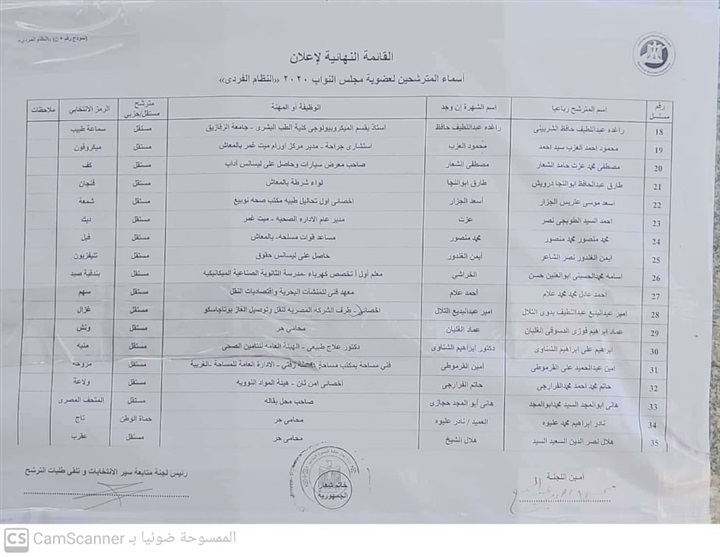 (نموذج رقم ٥ ن) بالنظام الفردى
القائمة النهائية لإعلان
أسماء المترشحين لعضوية مجلس النواب ٢٠٢٠ «النظام الفردى»
رقم مسلسل اسم المترشح رباعيا اسم الشهرة إن وجد الوظيفة أو المهنة مترشح مستقل/حزبي الرمز الانتخابي ملاحظات
18 راغده عبداللطيف حافظ الشربينى راغده عبداللطيف حافظ استاذ بقسم الميكروبيولوجى كلية الطب البشرى - جامعة الزقازيق مستقل سماعة طبيب
19 محمود احمد العزب سيد احمد محمود العزب استشارى جراحة - مدير مركز اورام ميت غمر بالمعاش مستقل ميكروفون
20 مصطفى محمد عزت حامد الشعار مصطفى الشعار صاحب معرض سيارات وحاصل على ليسانس آداب مستقل كف
21 طارق عبدالحافظ ابوالنجا درويش طارق ابوالنجا لواء شرطة بالمعاش مستقل فنجان
22 أسعد موسى عتريس الجزار أسعد الجزار اخصائى اول تحاليل طبيه مكتب صحه نوبيع مستقل شمعة
23 احمد السيد الطويجى نصر عزت مدير عام الاداره الصحيه - ميت غمر مستقل ديك
24 محمد منصور محمد منصور محمد منصور مساعد قوات مسلحة- بالمعاش مستقل فيل
25 أيمن الغندور نصر الشاعر أيمن الغندور حاصل على ليسانس حقوق مستقل تليفزيون
26 اسامه محمد الحسينى ابوالعنين حسن الخراشي معلم أول أ تخصص كهرباء -مدرسة الثانوية الصناعية الميكانيكية مستقل بندقية صيد
27 احمد عادل محمد محمد علام أحمد علام معهد فنى للمنشآت البحرية واقتصاديات النقل مستقل سهم
28 امير عبدالبديع عبداللطيف بدوى التلال امير عبدالبديع التلال اخصائى - طرف الشركه المصريه لنقل وتوصيل الغاز بوتاجاسكو مستقل غزال
29 عماد ابراهيم فوزى الدسوقى الغلبان عماد الغلبان محامي حر مستقل ونش
30 ابراهيم على ابراهيم الشناوى دكتور ابراهيم الشناوى دكتور علاج طبيعي - الهيئة العامه للتامين الصحى مستقل منبه
31 أمين عبدالحميد على القرموطى أمين القرموطى فني مساحة بمكتب مساحة - الادارة العامة للمساحة -الغربية مستقل مروحه
32 حاتم محمد احمد القرارجى حاتم القرارجى أخصائى امن ثان - هيئة المواد النوويه مستقل ولاعة
33 هانى ابوالمجد السيد محمد ابوالمجد هانى أبو المجد حجازى صاحب محل بقاله مستقل المتحف المصرى
34 نادر ابراهيم محمد عليوه العميد / نادر عليوه محامى حر حماة الوطن تاج
35 هلال نصر الدين السعيد السيد هلال الشيخ محامى حر مستقل عقرب
أمين اللجنة
رئيس لجنة متابعة سير الانتخابات و تلقى طلبات الترشح
خاتم شعار
الجمهورية
CS CamScanner الممسوحة ضوئيا بـ